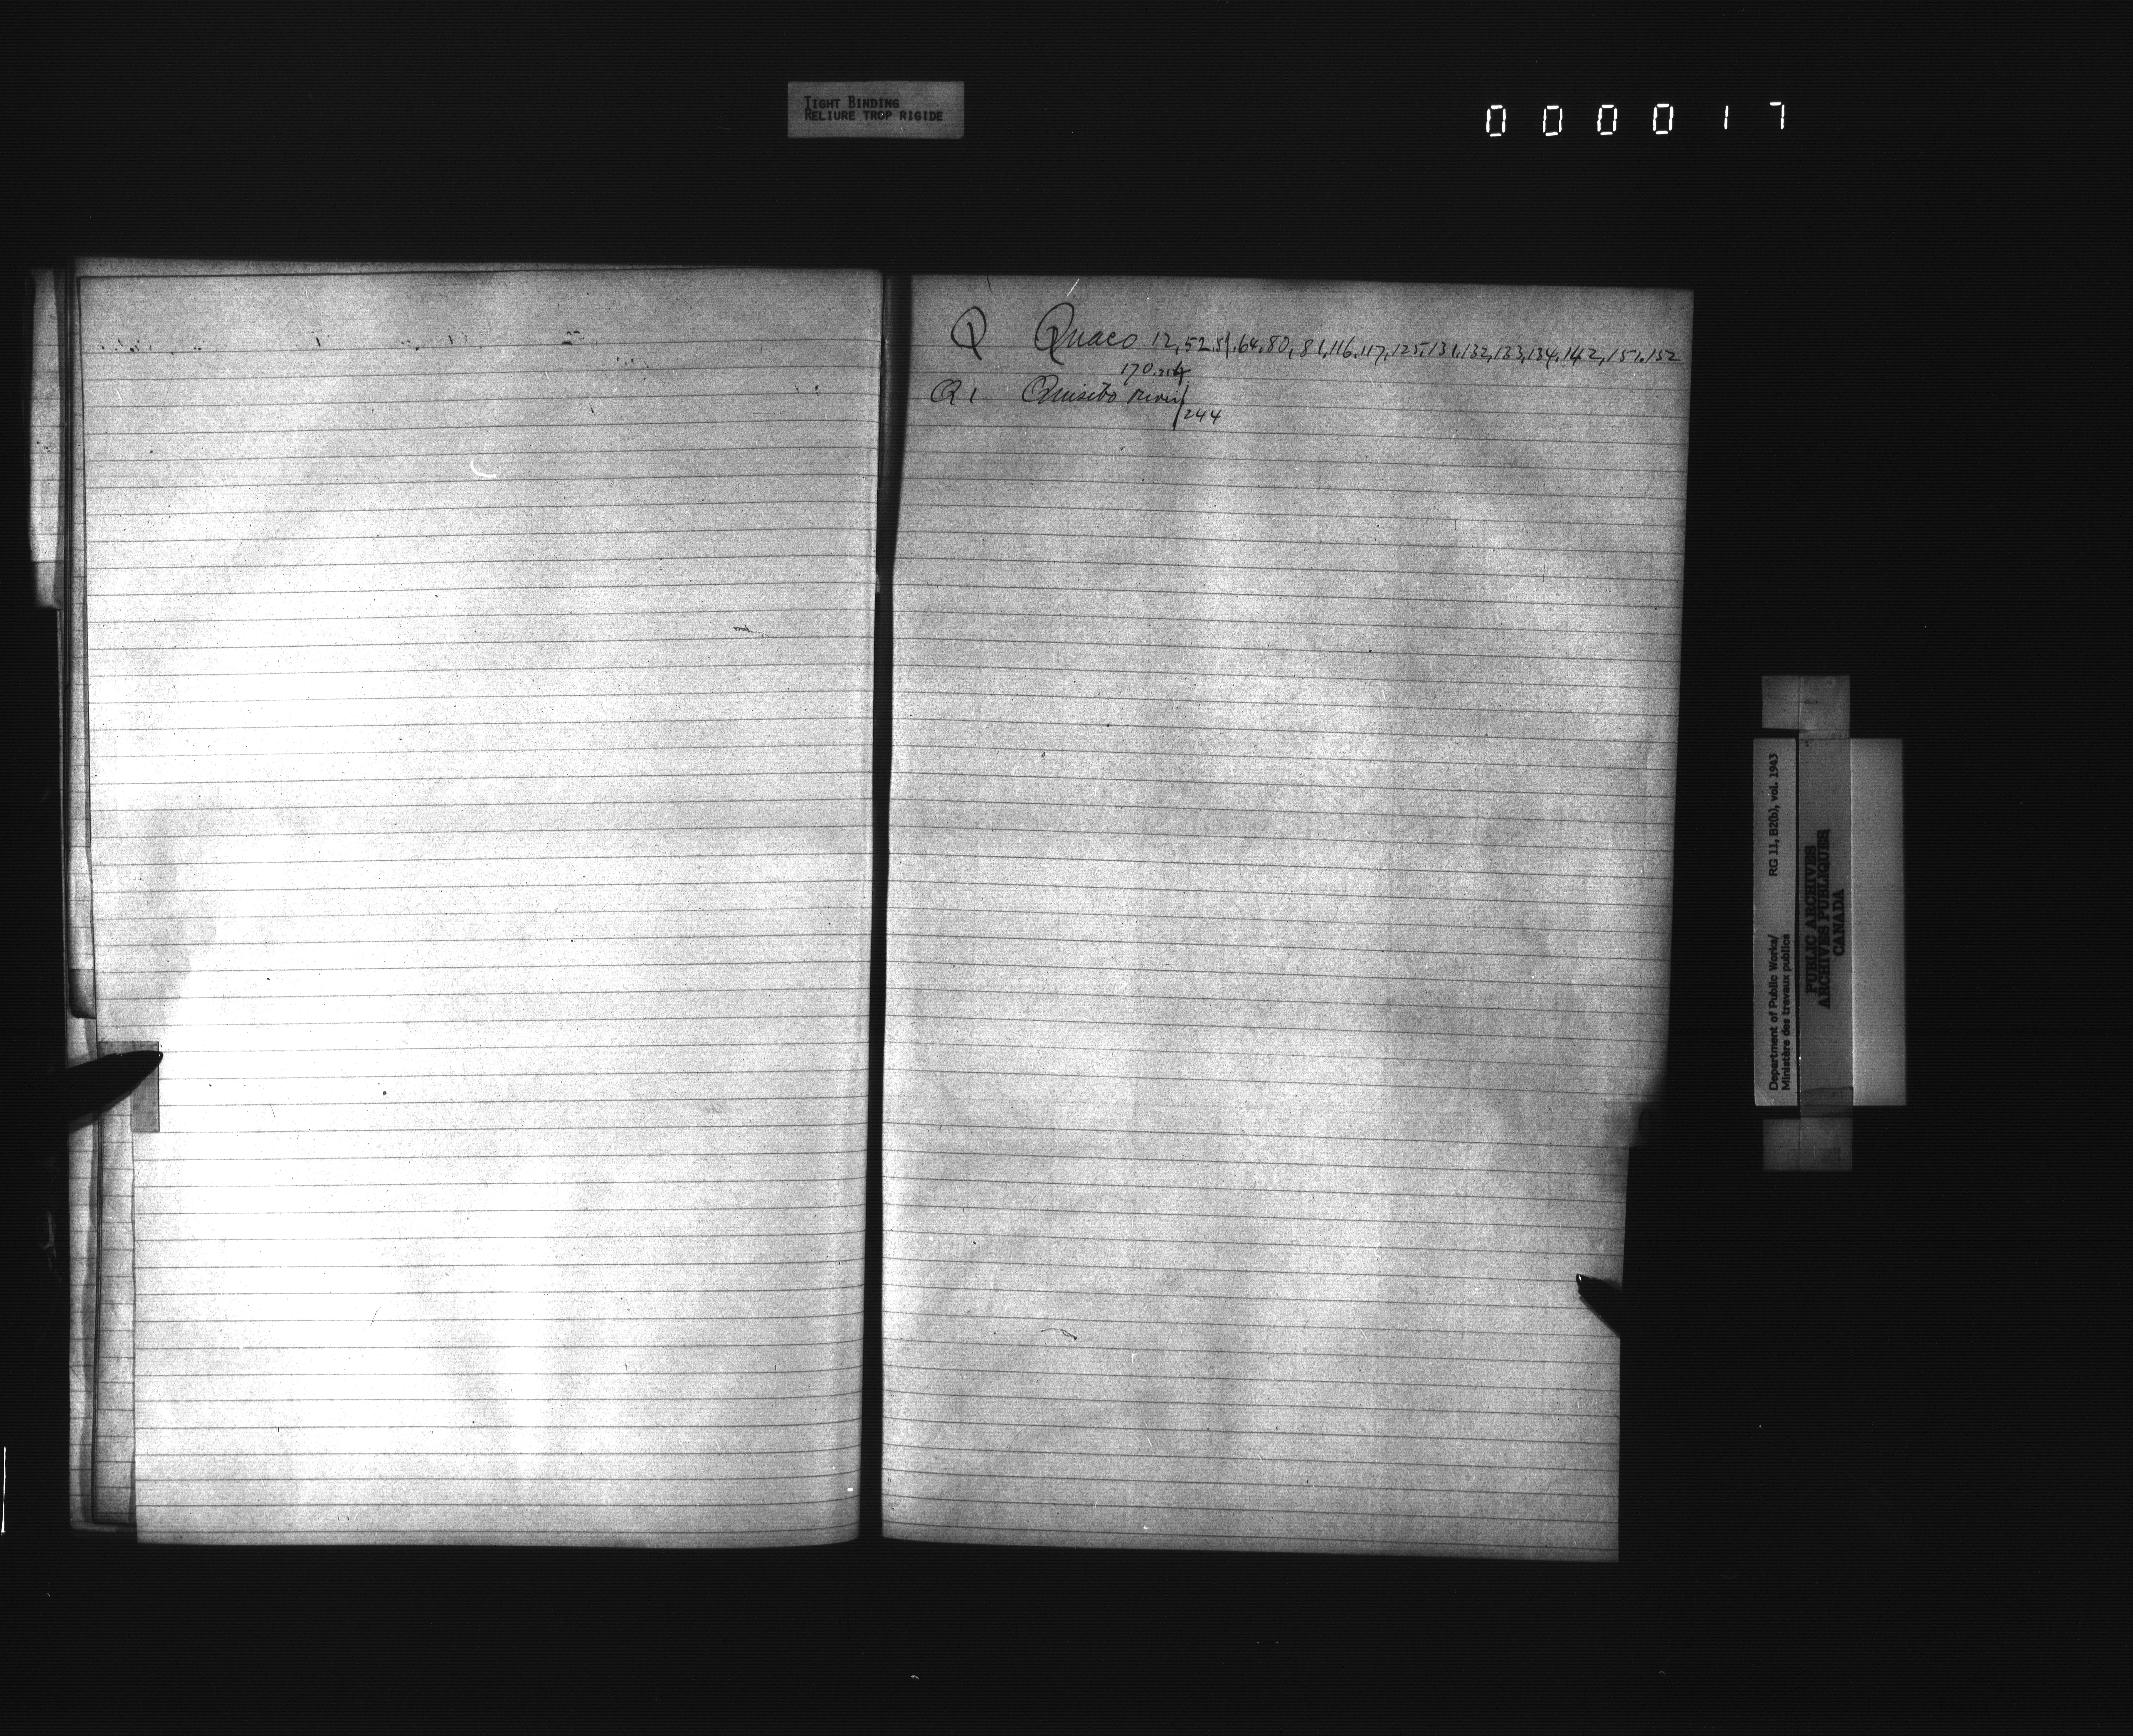 TIGHT BINDING
RELIURE TROP RIGIDE
000017
Q Quaco 12, 52, 64, 80, 81, 116, 117, 125, 131, 132, 133, 134, 142, 151, 152
170
Q 1 Quisibo River
244
Department of Public Works/ RG 11, B2(b), vol. 1943
Ministère des travaux publics
PUBLIC ARCHIVES
ARCHIVES PUBLIQUES
CANADA